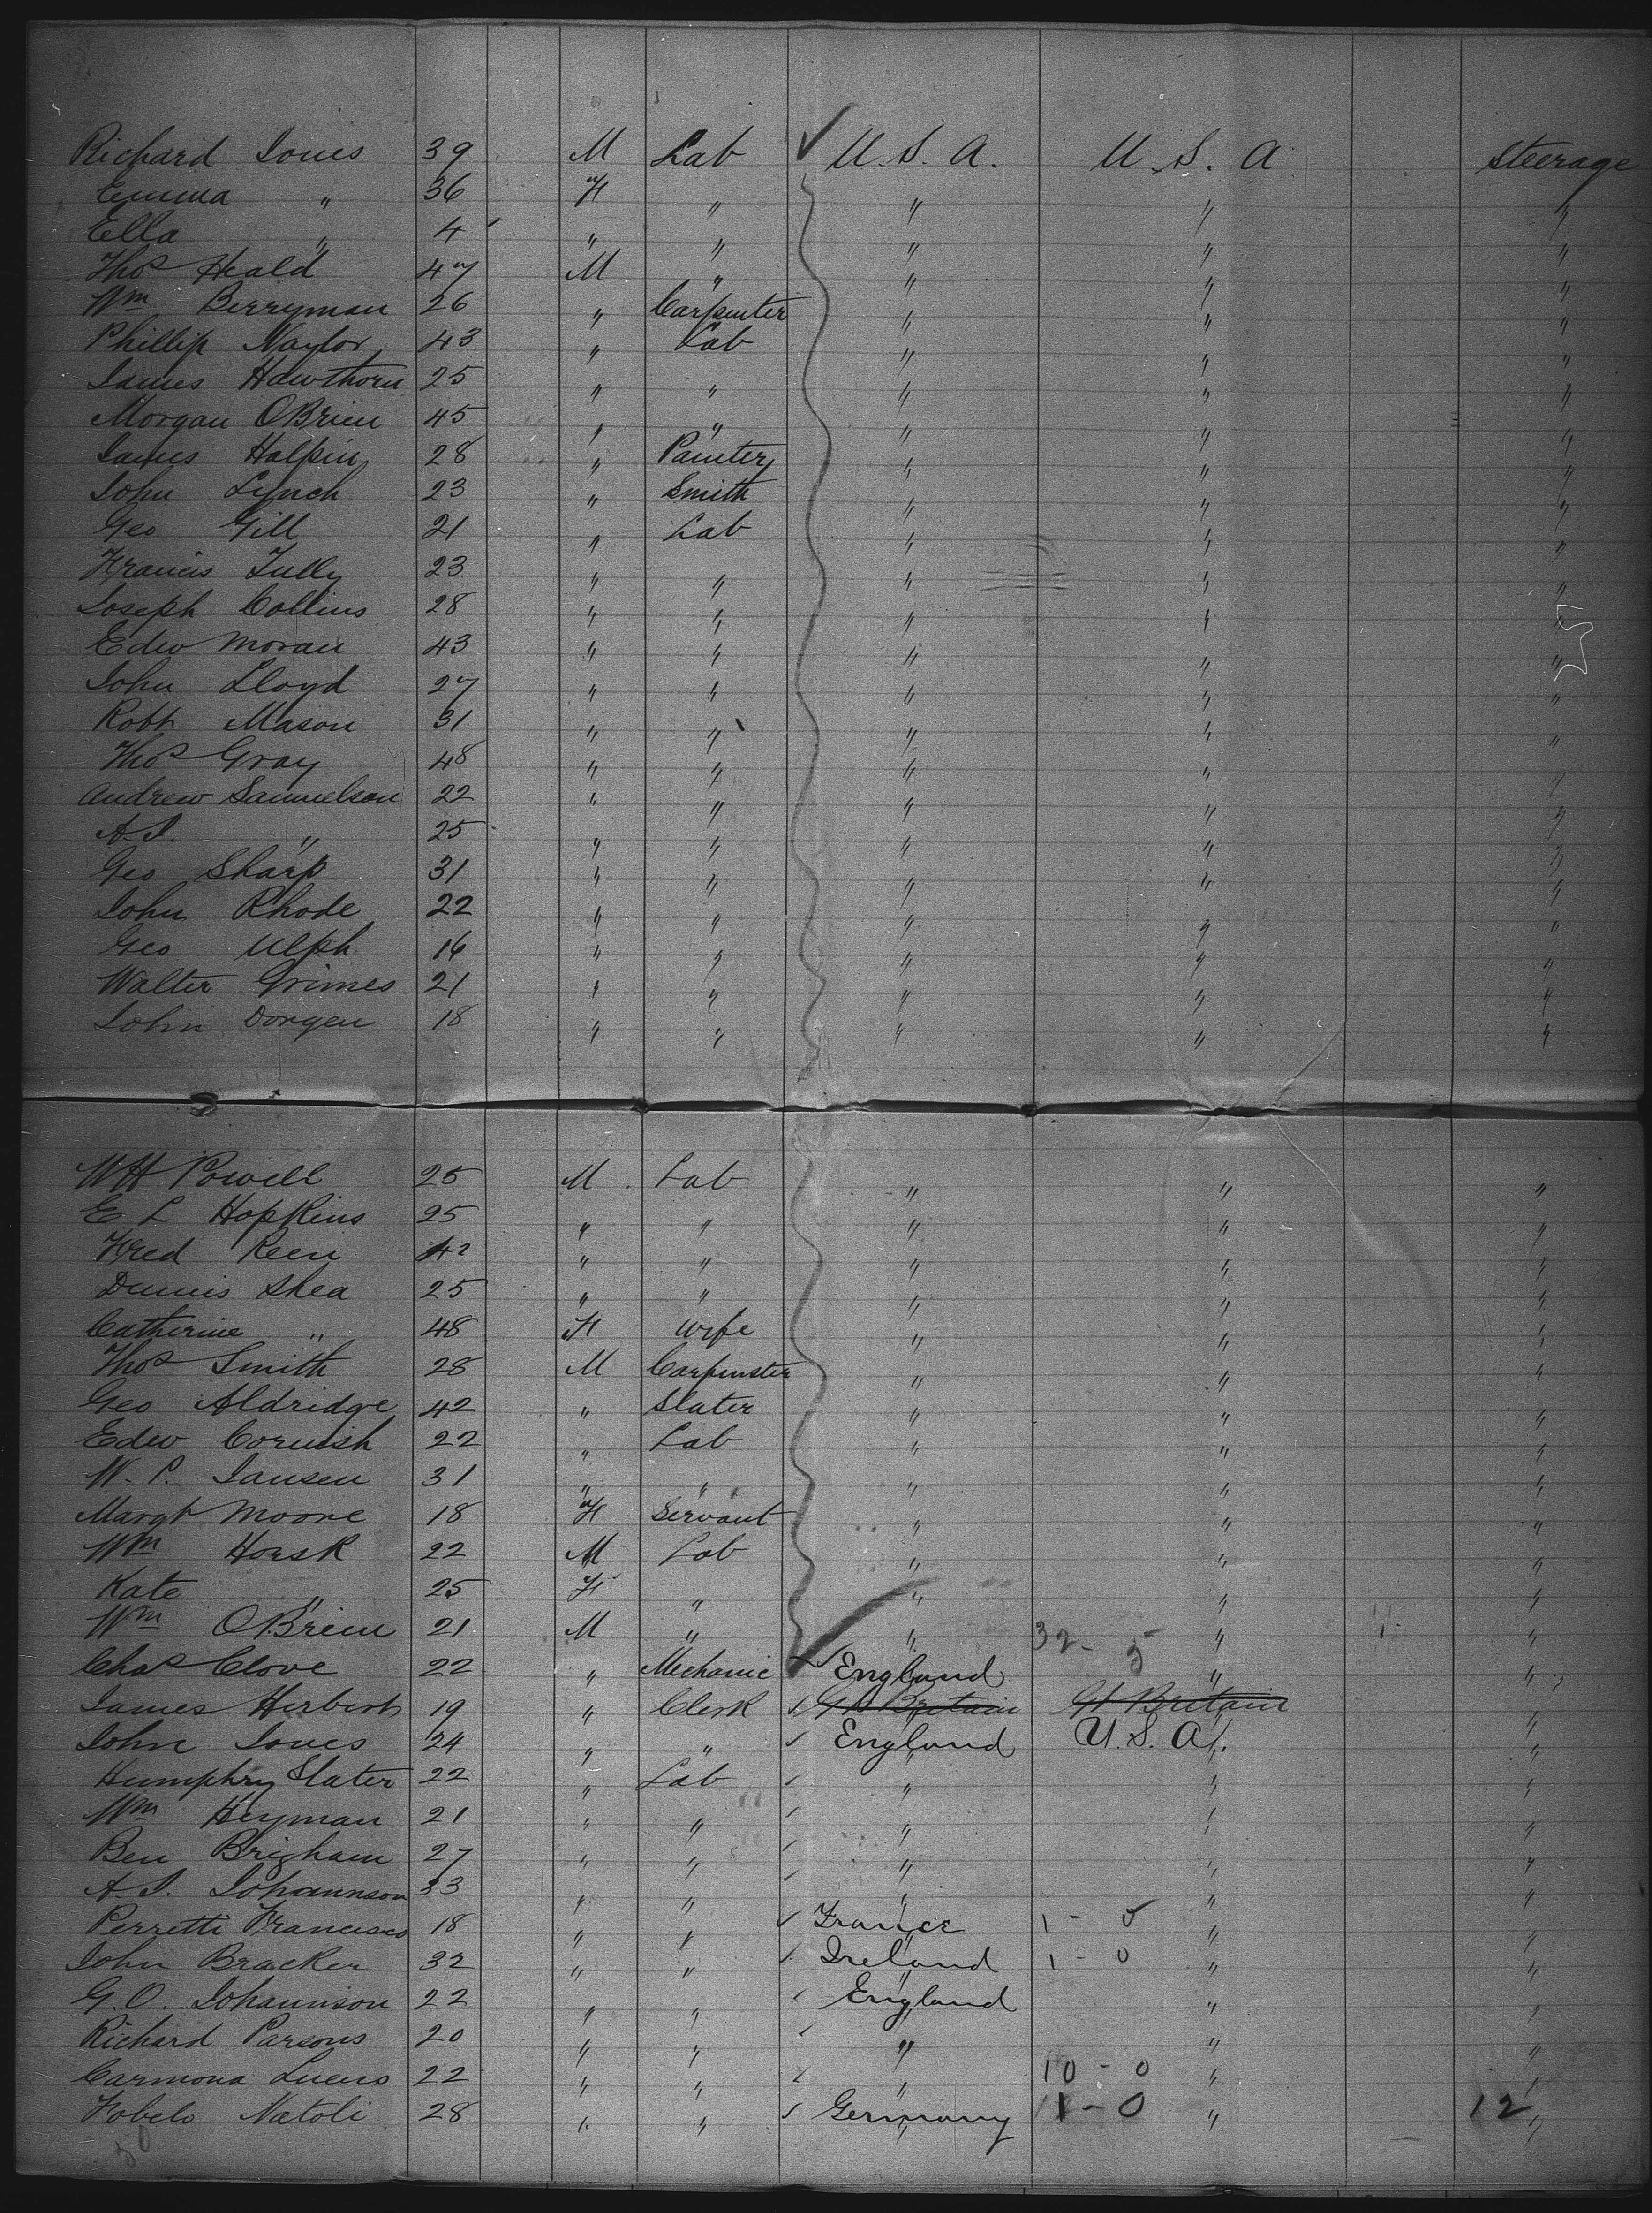 Richard Jones 39 M Lab ✓ U.S.A. U.S.A. Steerage
Emma " 36 F " " " "
Ella " 4 " " " " "
Thos Heald 47 M " " " "
Wm Berryman 26 " Carpenter " " "
Phillip Naylor 43 " Lab " " "
James Hawthorn 25 " " " " "
Morgan OBrien 45 " " " " "
James Halpin 28 " Painter " " "
John Lynch 23 " Smith " " "
Geo Gill 21 " Lab " " "
Francis Tully 23 " " " " "
Joseph Collins 28 " " " " "
Edw Moran 43 " " " " "
John Lloyd 27 " " " " "
Robt Mason 31 " " " " "
Thos Gray 48 " " " " "
Andrew Samuelson 22 " " " " "
A.J. " 25 " " " " "
Geo Sharp 31 " " " " "
John Rhode 22 " " " " "
Geo Ulph 16 " " " " "
Walter Grimes 21 " " " " "
John Dorgen 18 " " " " "
WH Powell 25 M Lab " " "
E L Hopkins 25 " " " " "
Fred Keen 42 " " " " "
Dennis Shea 25 " " " " "
Catherine " 48 F Wife " " "
Thos Smith 28 M Carpenster " " "
Geo Aldridge 42 " Slater " " "
Edw Cornish 22 " Lab " " "
W. P. Jansen 31 " " " " "
Margt Moore 18 F Servant " " "
Wm Horsk 22 M Lab " " "
Kate " 25 F " " " "
Wm OBrien 21 M " " 32 - 5 " "
Chas Clove 22 " Mechanic ✓ England " "
James Herbert 19 " Clerk ✓ Gt Britain Gt Britain "
John Jones 24 " " ✓ England U.S.A. "
Humphry Slater 22 " Lab ✓ " " "
Wm Heyman 21 " " ✓ " " "
Ben Brigham 27 " " ✓ " " "
A.J. Johannson 33 " " ✓ " " "
Perretti Francisco 18 " " ✓ France 1 - 5 " "
John Bracker 32 " " ✓ Ireland 1 - 0 " "
G.O. Johannson 22 " " ✓ England " "
Richard Parsons 20 " " ✓ " " "
Carmona Lucus 22 " " ✓ " 10 - 0 " "
Fobelo Natoli 28 " " ✓ Germany 1 - 0 " 12 "
50